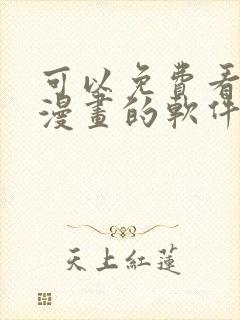 可以免費看
漫畫的軟件
天上紅蓮